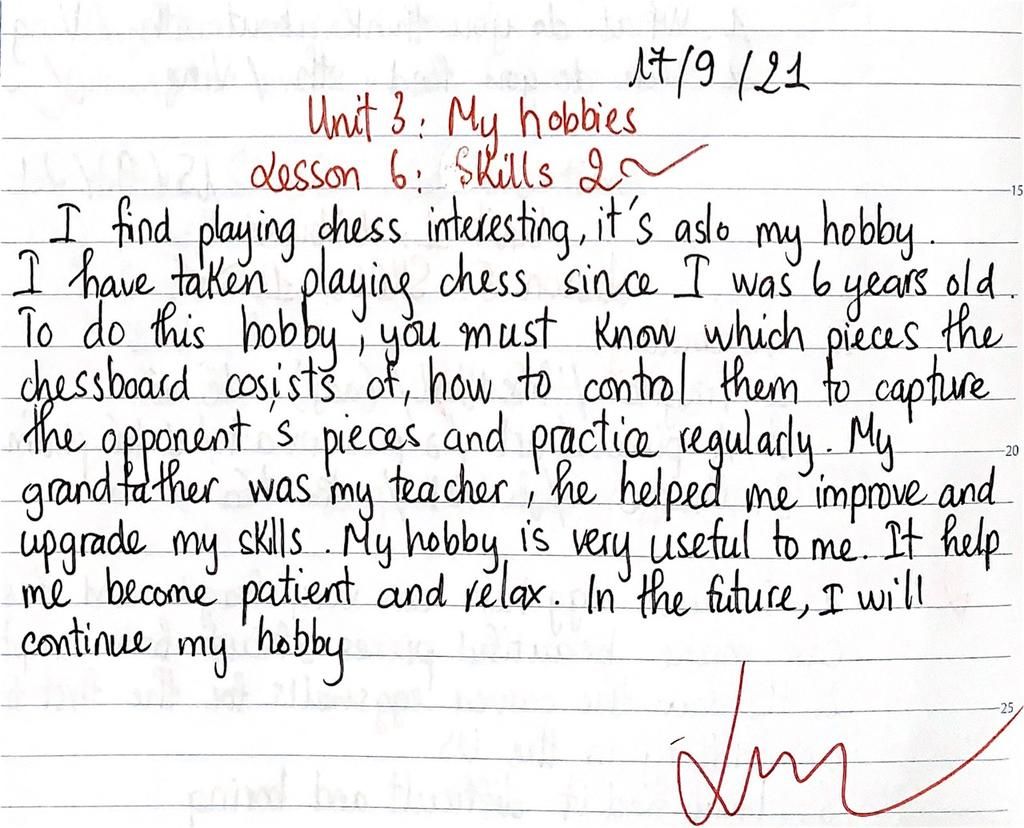 17/9/21
Unit 3: My hobbies
Lesson 6: Skills 2
I find playing chess interesting, it's aslo my hobby.
I have taken playing chess since I was 6 years old.
To do this hobby, you must know which pieces the
chessboard cosists of, how to control them to capture
the opponent's pieces and practice regularly. My
grandfather was my teacher, he helped me improve and
upgrade my skills. My hobby is very useful to me. It help
me become patient and relax. In the future, I will
continue my hobby
15
20
25